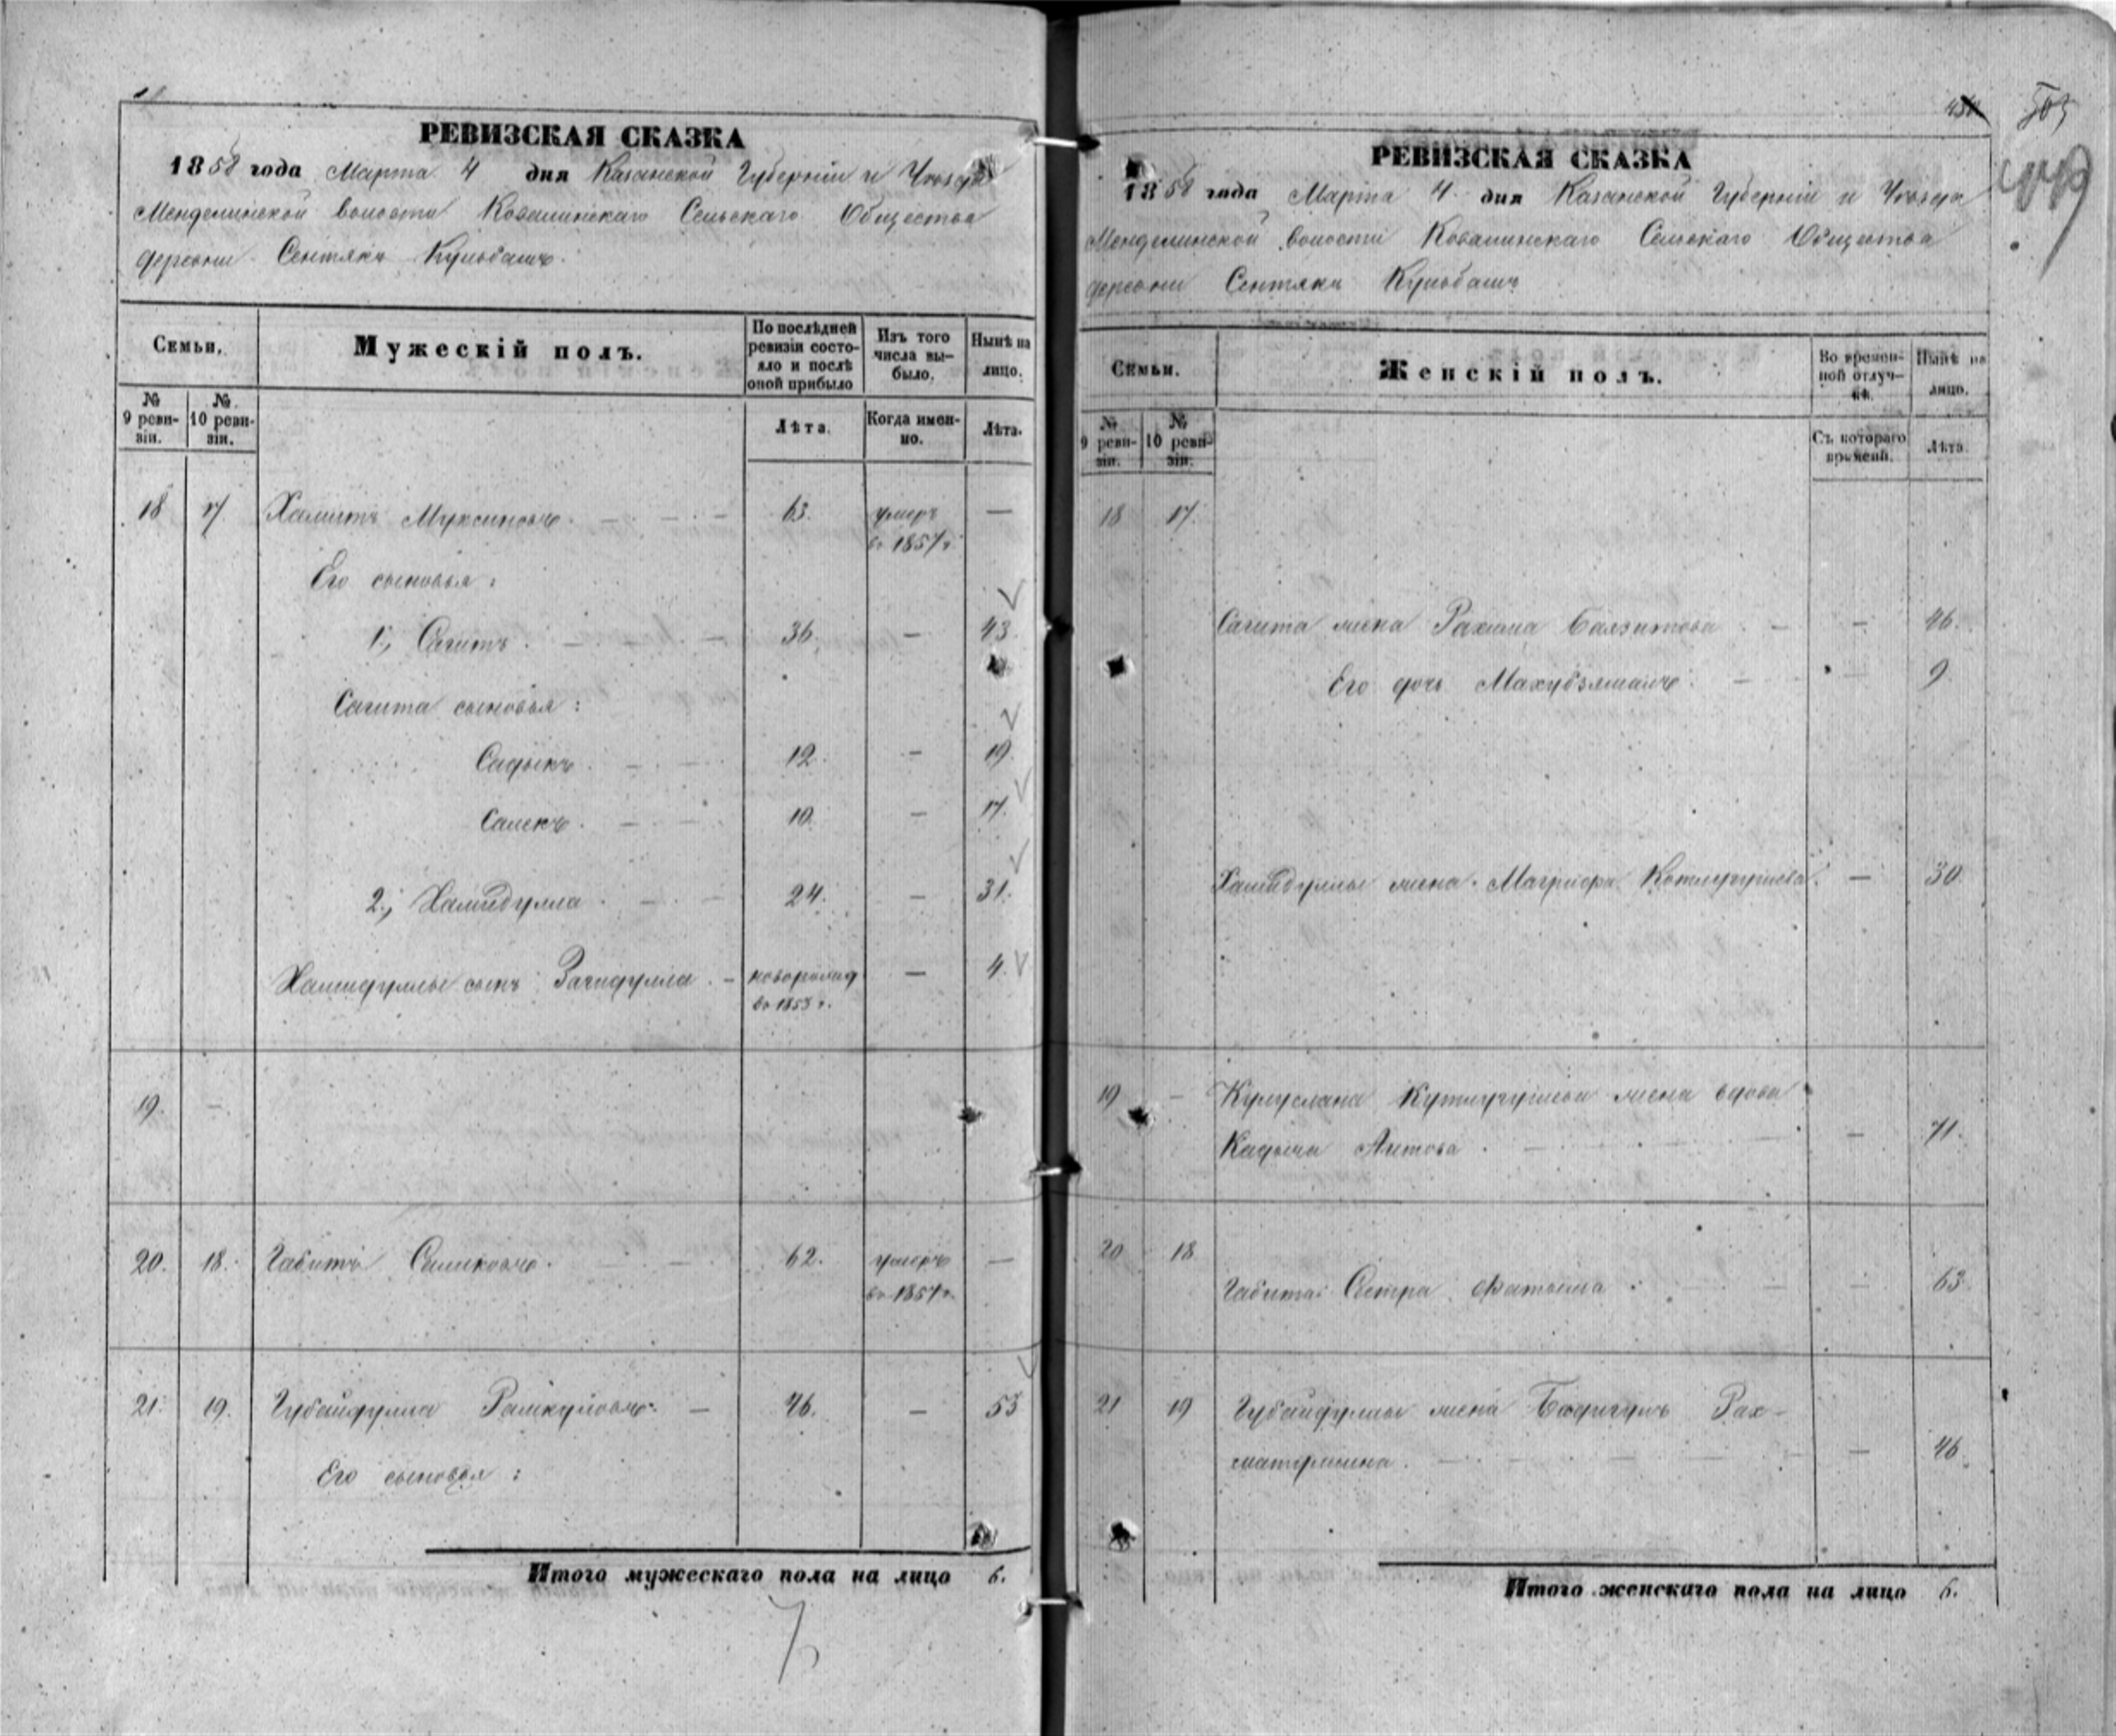 РЕВИЗСКАЯ СКАЗКА
1858 года Марта 4 дня Казанской Губерніи и Уѣзда
волости Сельскаго Общества
деревни Сентякъ Кульбашъ
Семьи.
Мужескій полъ.
По послѣдней ревизіи состояло и послѣ оной прибыло
Изъ того числа выбыло.
Нынѣ на лицо.
№ 9 ревизіи.
№ 10 ревизіи.
Лѣта.
Когда именно.
Лѣта.
18 17 Хамитъ Муксиновъ 63. умеръ —
въ 1857 г.
Его сыновья:
1, Сагитъ 36. — 43.
Сагита сыновья:
Садыкъ 12. — 19.
Салекъ 10. — 17.
2, Хамидулла 24. — 31.
Хамидуллы сынъ Загидулла новорожд — 4.
въ 1853 г.
19. —
20. 18. Габитъ 62. умеръ —
въ 1857 г.
21. 19. Губайдулла 46. — 53
Его сыновья:
Итого мужескаго пола на лицо 6.
7
503
РЕВИЗСКАЯ СКАЗКА
1858 года Марта 4 дня Казанской Губерніи и Уѣзда
волости Сельскаго Общества
деревни Сентякъ Кульбашъ
Семьи.
Женскій полъ.
Во временной отлучкѣ.
Нынѣ на лицо.
№ 9 ревизіи.
№ 10 ревизіи.
Съ котораго времени.
Лѣта.
18 17.
Сагита жена Рахима Баязитова — 46.
Его дочь — 9
Хамидуллы жена — 30
19 — жена вдова
Аитова — 71.
20 18
Габита Сестра Фатыма — 63.
21 19 Губайдуллы жена Рах-
матуллина — 46.
Итого женскаго пола на лицо 6.